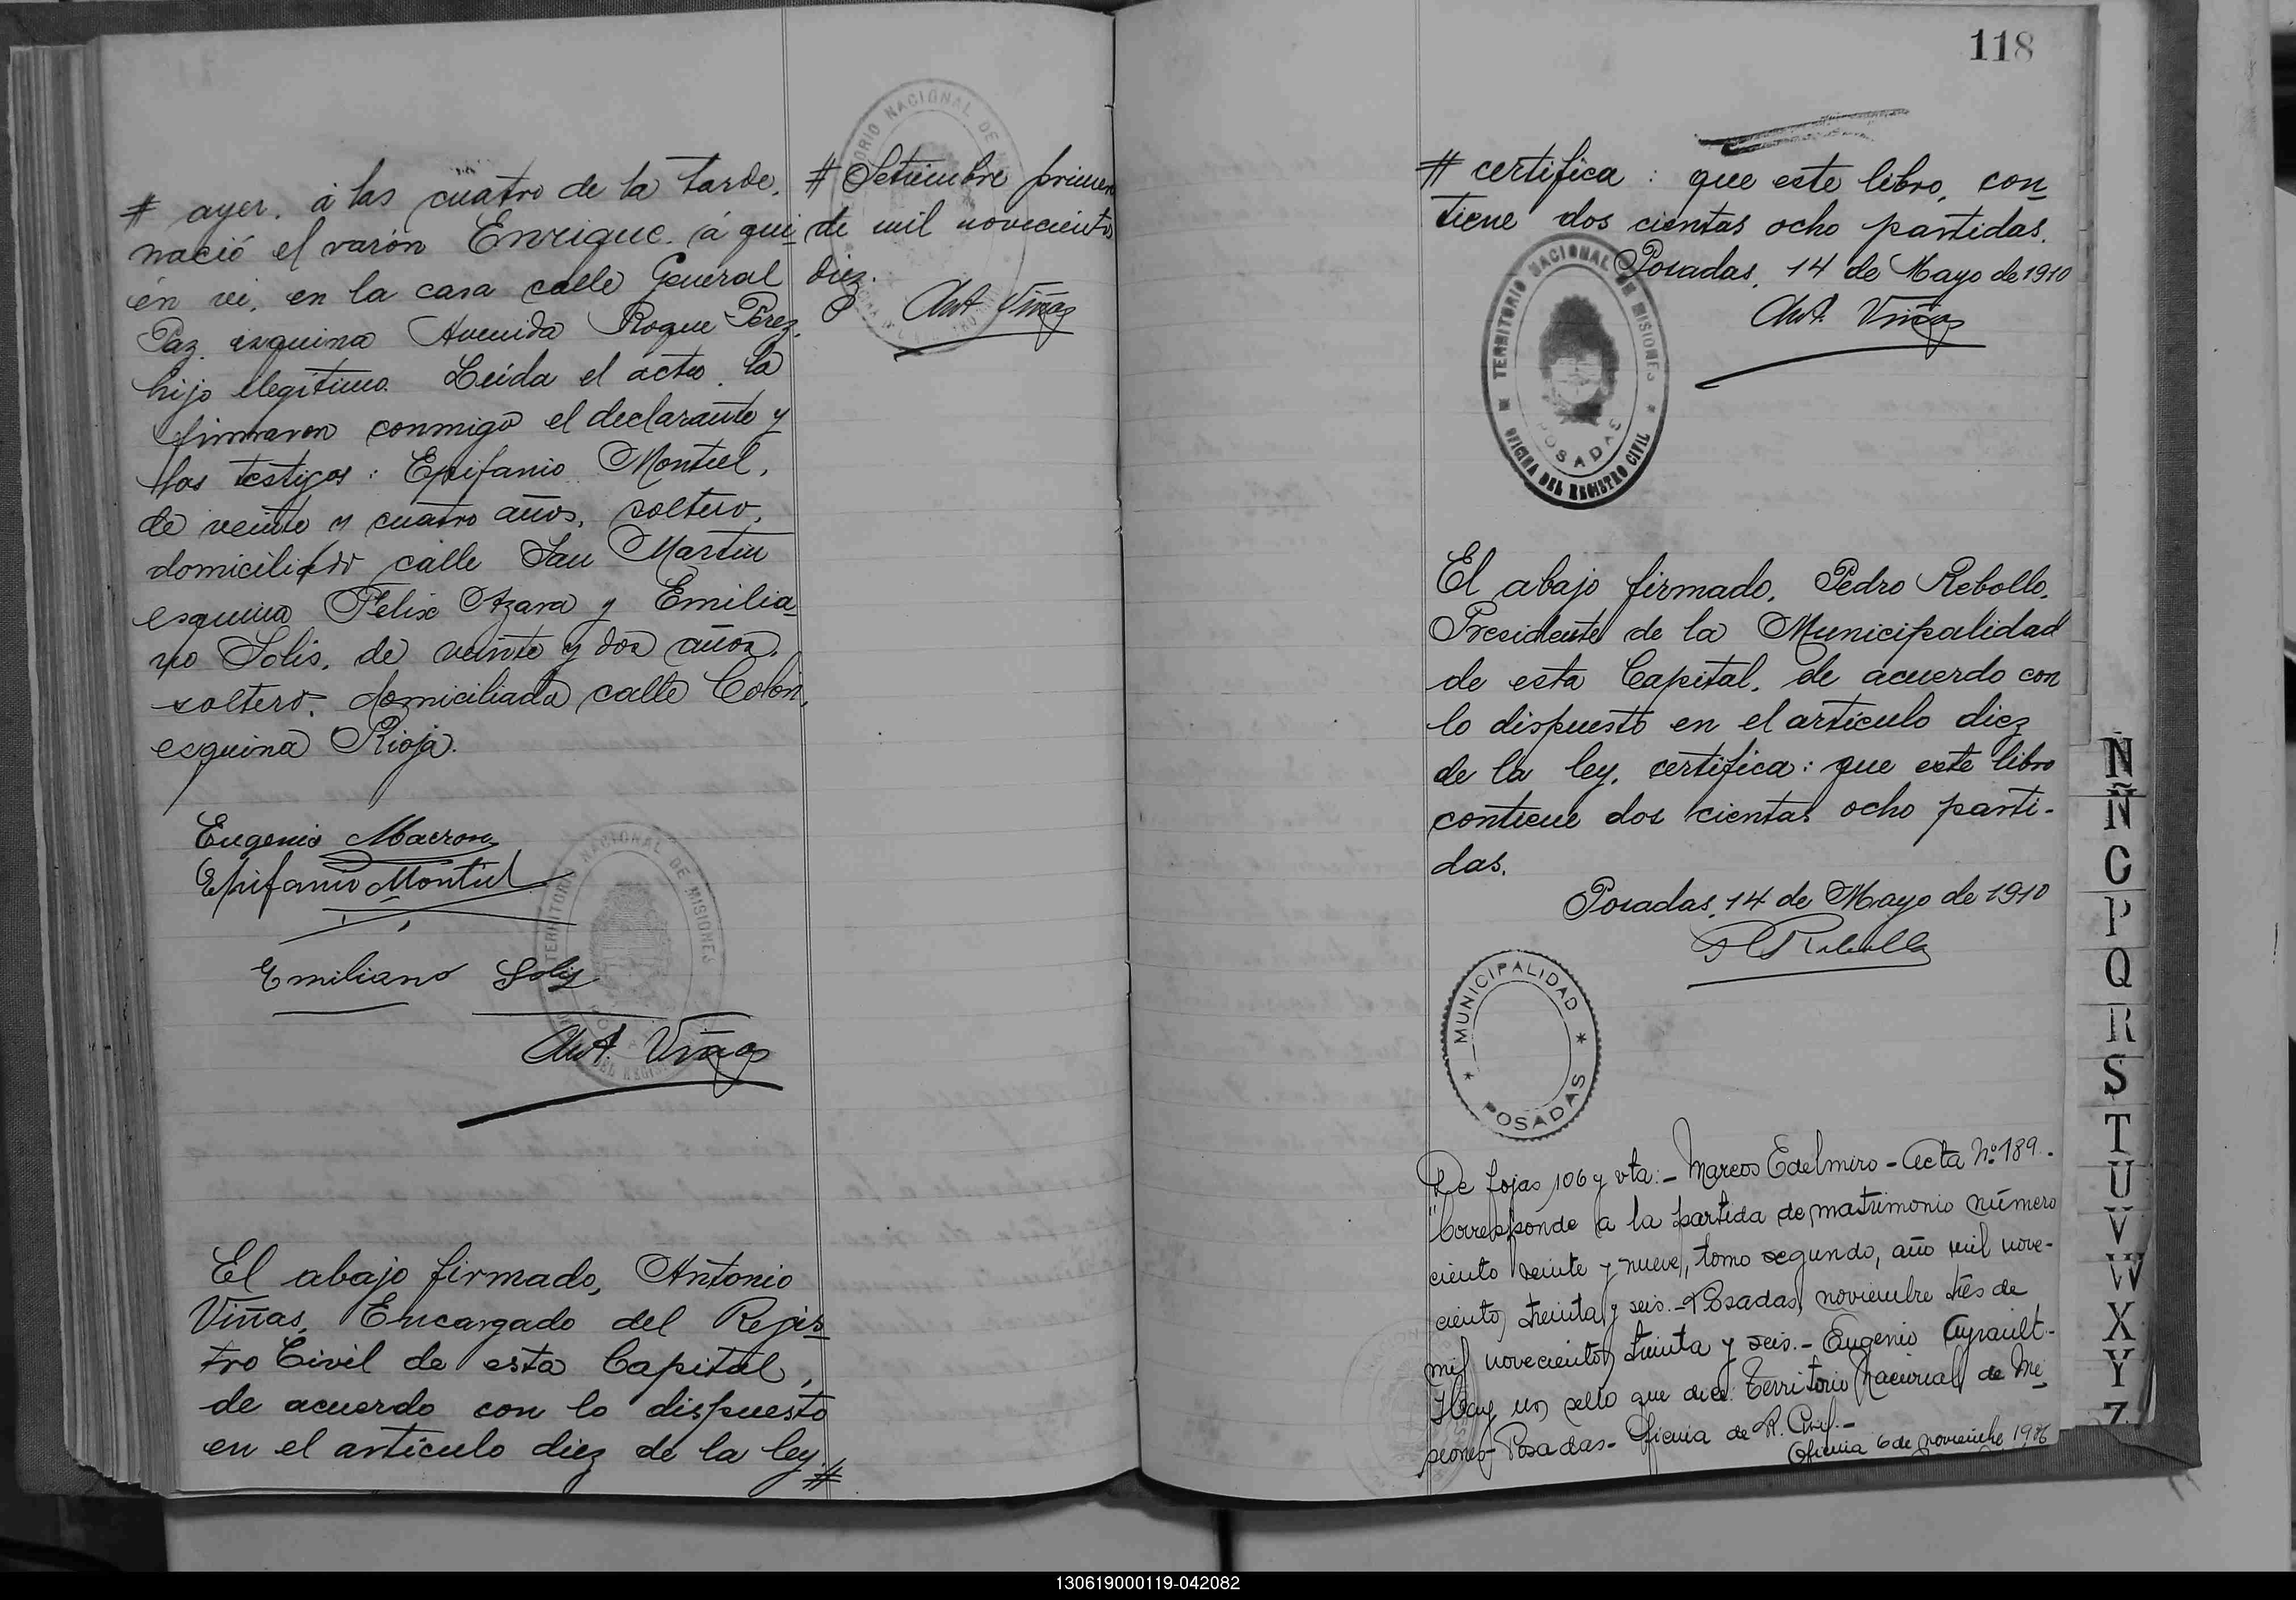 # ayer, á las cuatro de la tarde,
nació el varón Enrique, á qui-
én vi, en la casa calle General
Paz, esquina Avenida Roque Perez,
hijo ilegítimo. Leida el acta, la
firmaron conmigo el declarante y
los testigos: Epifanio Montiel,
de veinte y cuatro años, soltero,
domiciliado calle San Martin
esquina Felix Azara y Emilia-
no Solis, de veinte y dos años,
soltero, domiciliado calle Colón,
esquina Rioja.
Eugenio Macron
Epifanio Montiel
Emiliano Solis
Ant. Viñas
TERRITORIO NACIONAL DE MISIONES
El abajo firmado, Antonio
Viñas, Encargado del Regis-
tro Civil de esta Capital,
de acuerdo con lo dispuesto
en el artículo diez de la ley #
# Setiembre primero
de mil novecientos
diez.
Ant Viñas
118
# certifica: que este libro, con-
tiene dos cientas ocho partidas.
Posadas, 14 de Mayo de 1910
Ant. Viñas
TERRITORIO NACIONAL DE MISIONES
POSADAS
OFICINA DEL REGISTRO CIVIL
El abajo firmado, Pedro Rebollo,
Presidente de la Municipalidad
de esta Capital, de acuerdo con
lo dispuesto en el artículo diez
de la ley, certifica: que este libro
contiene dos cientas ocho parti-
das.
Posadas, 14 de Mayo de 1910
P Rebollo
MUNICIPALIDAD
POSADAS
De fojas 106 y vta:- Marcos Edelmiro - Acta Nº 189.-
"Corresponde a la partida de matrimonio número
ciento veinte y nueve, tomo segundo, año mil nove-
cientos treinta y seis.- Posadas, noviembre tres de
mil novecientos treinta y seis.- Eugenio Ayrault.-
Hay un sello que dice: Territorio Nacional de Mi-
siones- Posadas- Oficina de R. Civil.-
Oficina 6 de noviembre 1936
N
Ñ
O
P
Q
R
S
T
U
V
W
X
Y
Z
130619000119-042082